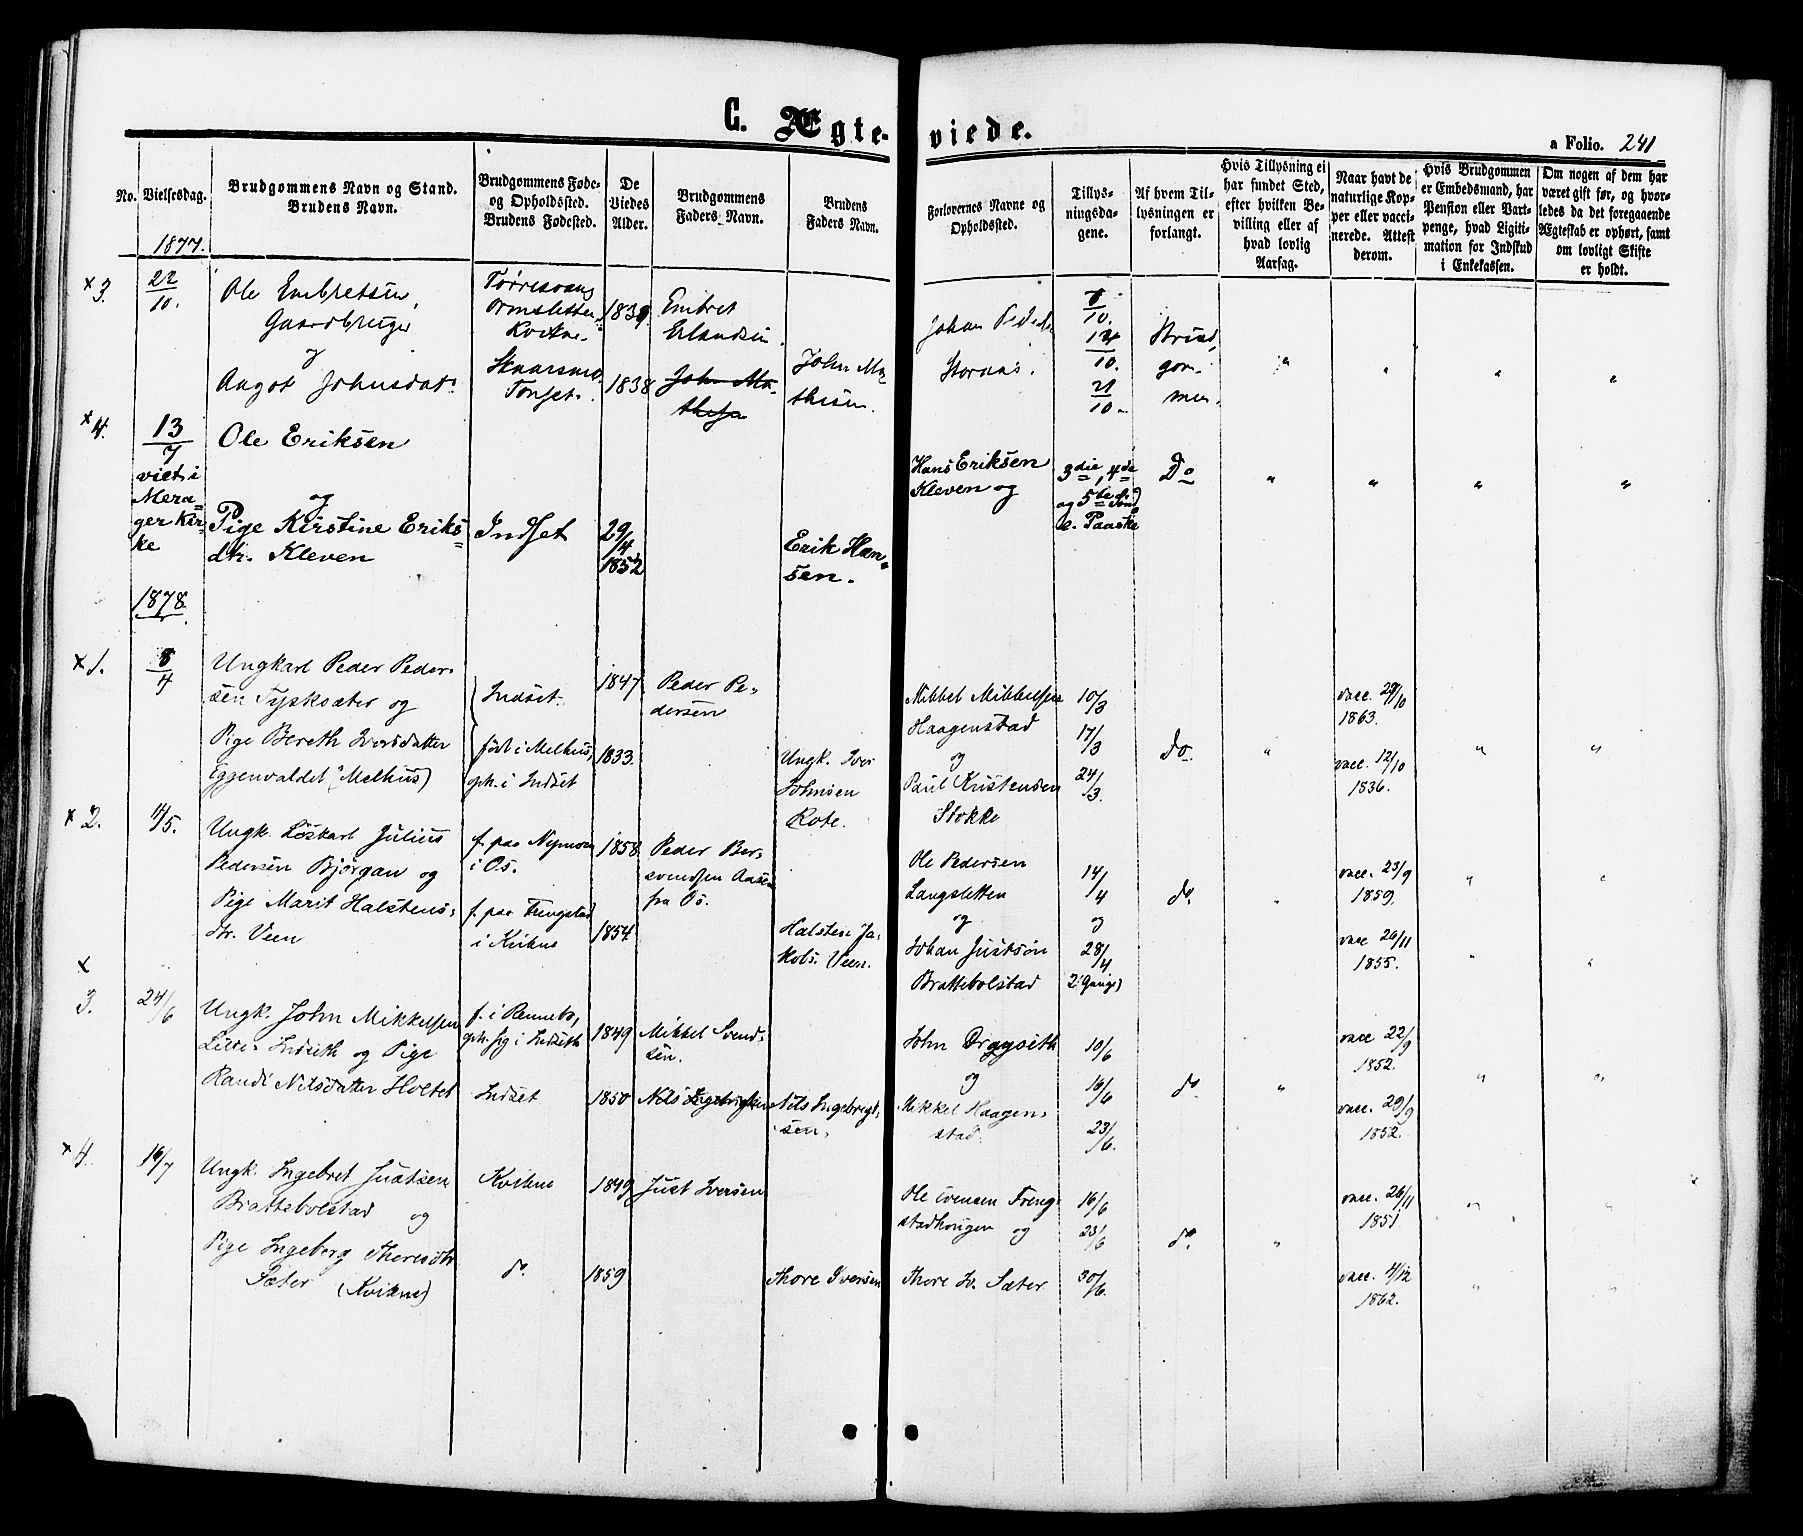 C. Ægte- viede.
a Folio. 241
No.
Vielsesdag.
Brudgommens Navn og Stand.
Brudens Navn.
Brudgommens Føde-
og Opholdssted.
Brudens Fødested.
De
Viedes
Alder.
Brudgommens
Faders Navn.
Brudens
Faders Navn.
Forlovernes Navne og
Opholdssted.
Tillys-
ningsda-
gene.
Af hvem Til-
lysningen er
forlangt.
Hvis Tillysning ei
har fundet Sted,
efter hvilken Be-
villing eller af
hvad lovlig
Aarsag.
Naar havt de
naturlige Kop-
per eller vacci-
nerede. Attest
derom.
Hvis Brudgommen
er Embedsmand, har
Pension eller Vart-
penge, hvad Ligiti-
mation for Indskud
i Enkekassen.
Om nogen af dem har
været gift før, og hvor-
ledes da det foregaaende
Ægteskab er ophørt, samt
om lovligt Skifte
er holdt.
1877.
x 3.
22/10.
Ole Embretsen,
Gaardbruger
og
Angot Johnsdat.
Tørresvang
Ormsletten
Kvikne.
Tønset.
1839.
1838
Embret
Erlandsen.
John Ma-
thisen.
Johan Peder
Stornæs.
8/10.
14/10.
21/10.
Brud,
gom-
men.
" " " "
x 4.
13/7
viet i
Mera=
ger Kir-
ke
Ole Eriksen
og
Pige Kirstine Eriks=
dtr. Kleven
Indset
29/4
1852
Erik Han=
sen.
Hans Eriksen
Kleven og
3die, 4de
og 5te Sønd.
e. Paaske
Do
" " " "
1878.
x 1.
8/4
Ungkarl Peder Peder-
sen Tysksæter og
Pige Bereth Iversdatter
Eggenvaldet (Melhus)
Indset.
født i Melhus,
oph. i Indset
1847
1833.
Peder Pe-
dersen
Ungk. Iver
Johnsen
Rote.
Mikkel Mikkelsen
Haagenstad
og
Paul Kristensen
Stokke
10/3
17/3
24/3.
do.
vacc. 29/10
1863.
vacc. 12/10
1836.
" " "
x 2.
4/5.
Ungk. Løskarl Julius
Pedersen Bjørgan og
Pige Marit Halstens-
dtr. Veen
f. paa Nymoen
i Os.
f. paa Frengstad
i Kvikne
1858
1854
Peder Ber-
svendsen Aasen
fra Os.
Halsten Ja-
kobs. Veen.
Ole Pedersen
Langsletten
og
Johan Justsøn
Brattebolstad
14/4
og
28/4
2 Gange)
do.
vacc. 23/9
1859.
vacc. 26/11
1855.
" " "
x
3.
24/6
Ungk. John Mikkelsen
Lille-Indseth og Pige
Randi Nilsdatter Holtet
f. i Rennebo,
oph. sig i Indseth
Indset
1849
1850
Mikkel Svend-
sen.
Nils Ingebrigtsen
Nils Ingebrigt-
sen.
John Drøyseth
og
Mikkel Haagen-
stad.
10/6
16/6
23/6.
do.
vacc 22/9
1852.
vacc. 29/9
1852.
" " "
x 4.
16/7
Ungk. Ingebret Justsen
Brattebolstad og
Pige Ingeborg Thoresdtr
Sæter (Kvikne)
Kvikne
do.
1849
1859
Just Iversen
Thore Iversen
Ole Svensen Freng-
stadhougen og
Thore Iv. Sæter
16/6
23/6
30/6.
do.
vacc. 26/11
1851.
vacc. 4/12
1862.
" " "